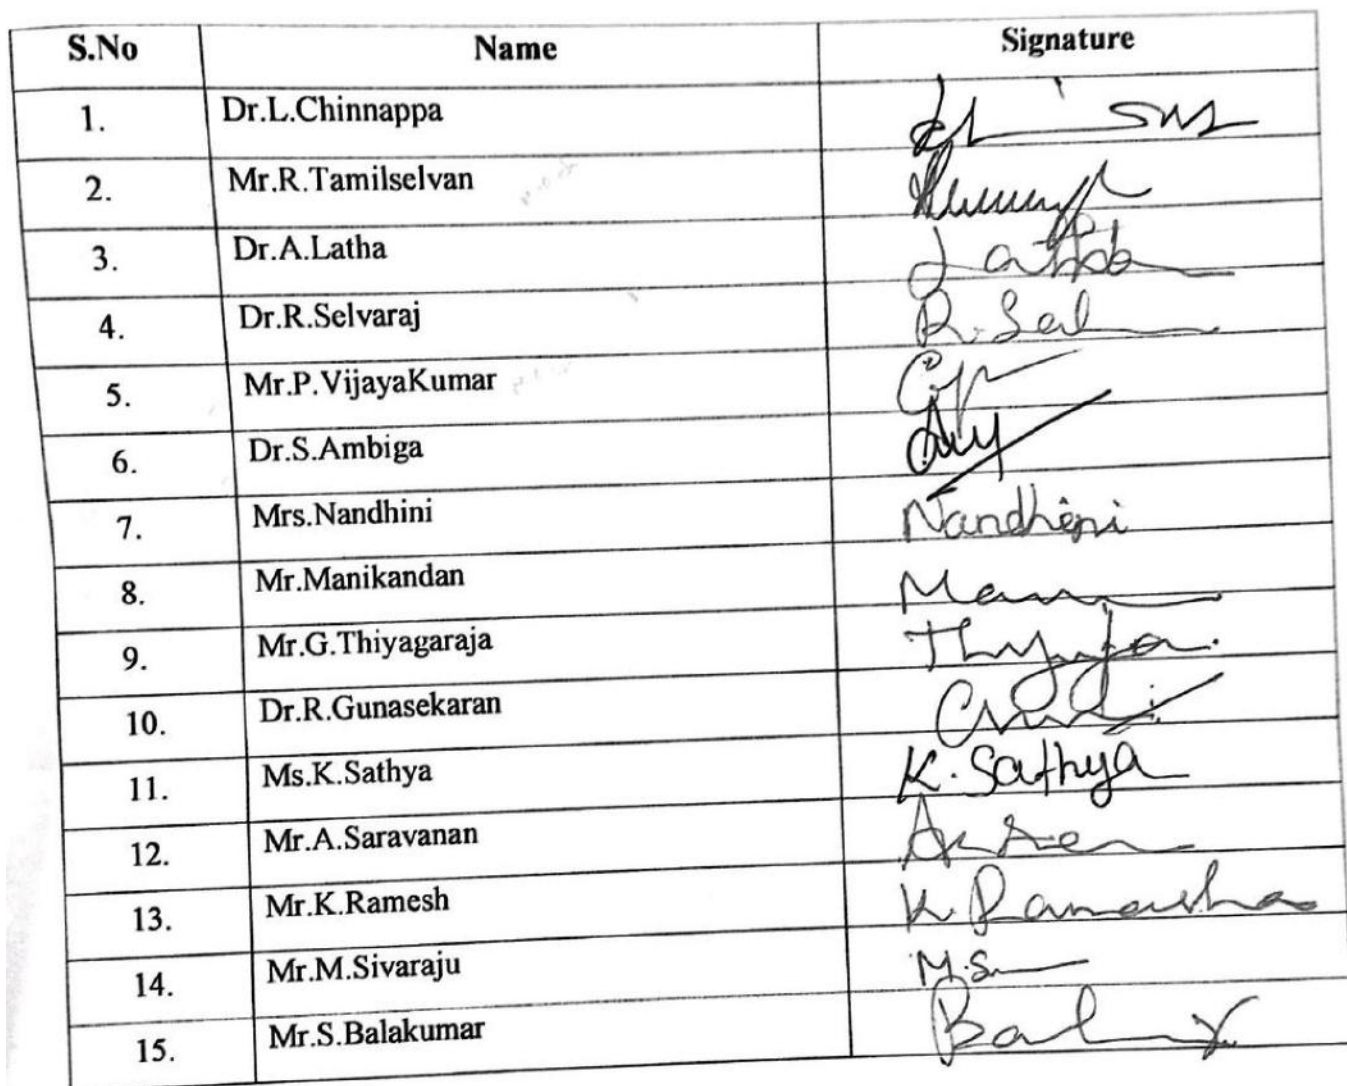 S.No Name Signature
1. Dr.L.Chinnappa
2. Mr.R.Tamilselvan
3. Dr.A.Latha Latha
4. Dr.R.Selvaraj R.Sel
5. Mr.P.VijayaKumar
6. Dr.S.Ambiga
7. Mrs.Nandhini Nandhini
8. Mr.Manikandan
9. Mr.G.Thiyagaraja
10. Dr.R.Gunasekaran
11. Ms.K.Sathya K.Sathya
12. Mr.A.Saravanan
13. Mr.K.Ramesh
14. Mr.M.Sivaraju M.S
15. Mr.S.Balakumar